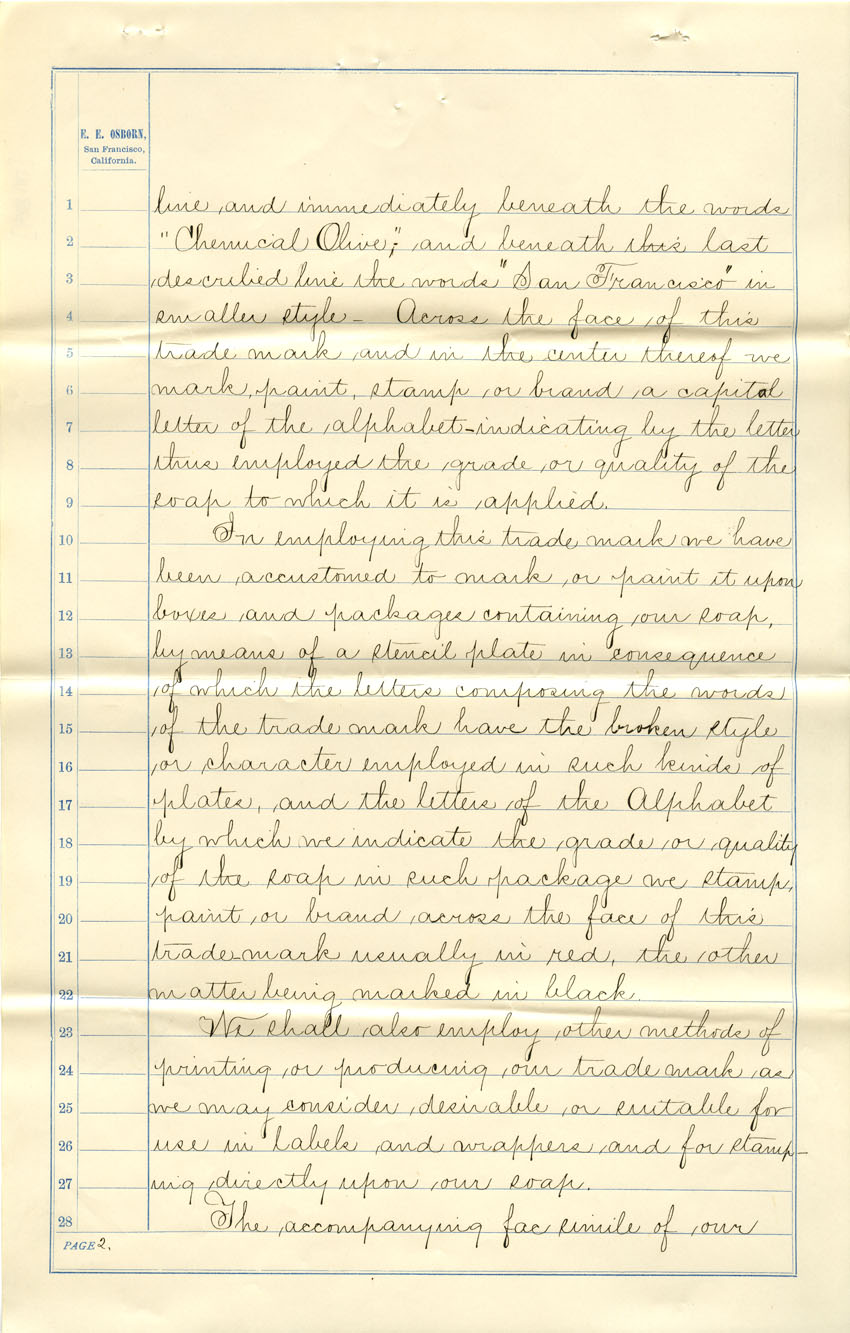 E. E. OSBORN,
San Francisco,
California.
1 line, and immediately beneath the words
2 "Chemical Olive"; and beneath this last
3 described line the words "San Francisco" in
4 smaller style - Across the face of this
5 trade mark and in the center thereof we
6 mark, paint, stamp or brand a capital
7 letter of the alphabet - indicating by the letter
8 thus employed the grade or quality of the
9 soap to which it is applied.
10 In employing this trade mark we have
11 been accustomed to mark or paint it upon
12 boxes and packages containing our soap,
13 by means of a stencil plate in consequence
14 of which the letters composing the words
15 of the trade mark have the broken style
16 or character employed in such kinds of
17 plates, and the letters of the Alphabet
18 by which we indicate the grade or quality
19 of the soap in such package we stamp,
20 paint or brand across the face of this
21 trade-mark usually in red, the other
22 matter being marked in black.
23 We shall also employ other methods of
24 printing or producing our trade mark as
25 we may consider desirable or suitable for
26 use in labels and wrappers and for stamp-
27 ing directly upon our soap.
28 The accompanying fac simile of our
PAGE 2.